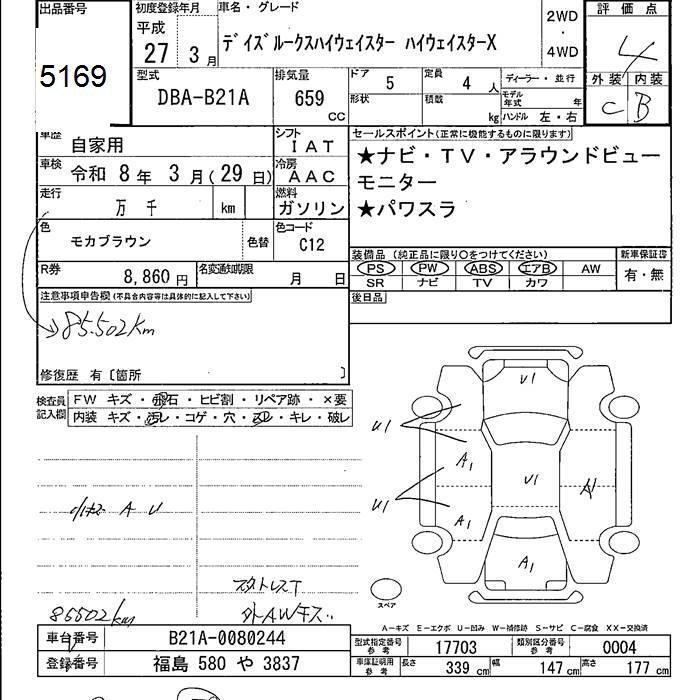 出品番号
5169
初度登録年月
平成
27 3月
車名・グレード
デイズルークスハイウェイスター ハイウェイスターX
2WD
・
4WD
評価点
4
外装 内装
C B
型式
DBA-B21A
排気量
659
CC
ドア
5
定員
4 人
形状
積載
kg
ディーラー・並行
モデル年式 年
ハンドル 左・右
車歴
自家用
シフト
IAT
車検
令和 8年 3月(29日)
冷房
AAC
走行
万 千 km
燃料
ガソリン
色
モカブラウン
色替
色コード
C12
R券
8,860円
名変通知期限
月 日
セールスポイント(正常に機能するものに限ります)
★ナビ・TV・アラウンドビュー
モニター
★パワスラ
装備品 (純正品に限り○をつけてください)
PS PW ABS エアB AW
SR ナビ TV カワ
新車保証書
有・無
後日品
注意事項申告欄(不具合内容等は具体的に記入して下さい)
85.502km
修復歴 有〔箇所 〕
検査員
記入欄
FW キズ・飛石・ヒビ割・リペア跡・×要
内装 キズ・汚レ・コゲ・穴・スレ・キレ・破レ
A U
スタトレスT
85502km
外AWキズ
U1
U1
U1
A1
U1
U1
A1
A1
スペア
A-キズ E-エクボ U-凹み W-補修跡 S-サビ C-腐食 XX-交換済
車台番号
B21A-0080244
登録番号
福島 580 や 3837
型式指定番号
参考
17703
類別区分番号
参考
0004
車庫証明用
参考
長さ 339cm
幅 147cm
高さ 177cm